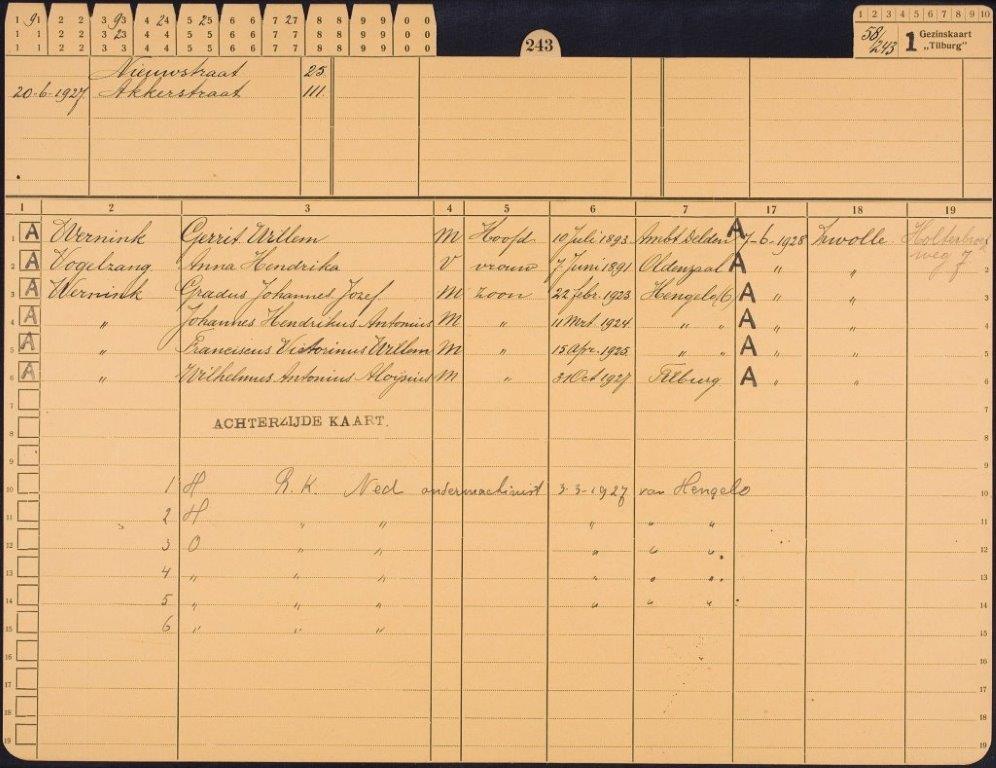 1 9 1 2 2 3 9 3 4 24 5 25 6 6 7 27 8 8 9 9 0 0
1 1 2 2 3 23 4 4 5 5 6 6 7 7 8 8 9 9 0 0
1 1 2 2 3 3 4 4 5 5 6 6 7 7 8 8 9 9 0 0
243
1 2 3 4 5 6 7 8 9 10
58/243 1 Gezinskaart „Tilburg”
Nieuwstraat 25
20-6-1927 Akkerstraat 111
1 2 3 4 5 6 7 17 18 19
1 A Wernink Gerrit Willem M Hoofd 10 Juli 1893 Ambt Delden A 7-6-1928 Zwolle Holterbroek 1
weg 7
2 A Vogelzang Anna Hendrika V vrouw 7 Juni 1891 Oldenzaal A " " 2
3 A Wernink Gradus Johannes Jozef M zoon 22 febr. 1923 Hengelo (O) A " " 3
4 A " Johannes Hendrikus Antonius M " 11 Mrt. 1924 " " A " " 4
5 A " Franciscus Victorinus Willem M " 15 Apr. 1925 " " A " " 5
6 A " Wilhelmus Antonius Aloijsius M " 31 Oct 1927 Tilburg A " " 6
7 7
ACHTERZIJDE KAART.
8 8
9 9
10 1 H R.K. Ned ondermachinist 3-3-1927 van Hengelo 10
11 2 H " " " " " 11
12 3 O " " " " " 12
13 4 " " " " " " 13
14 5 " " " " " " 14
15 6 " " " 15
16 16
17 17
18 18
19 19